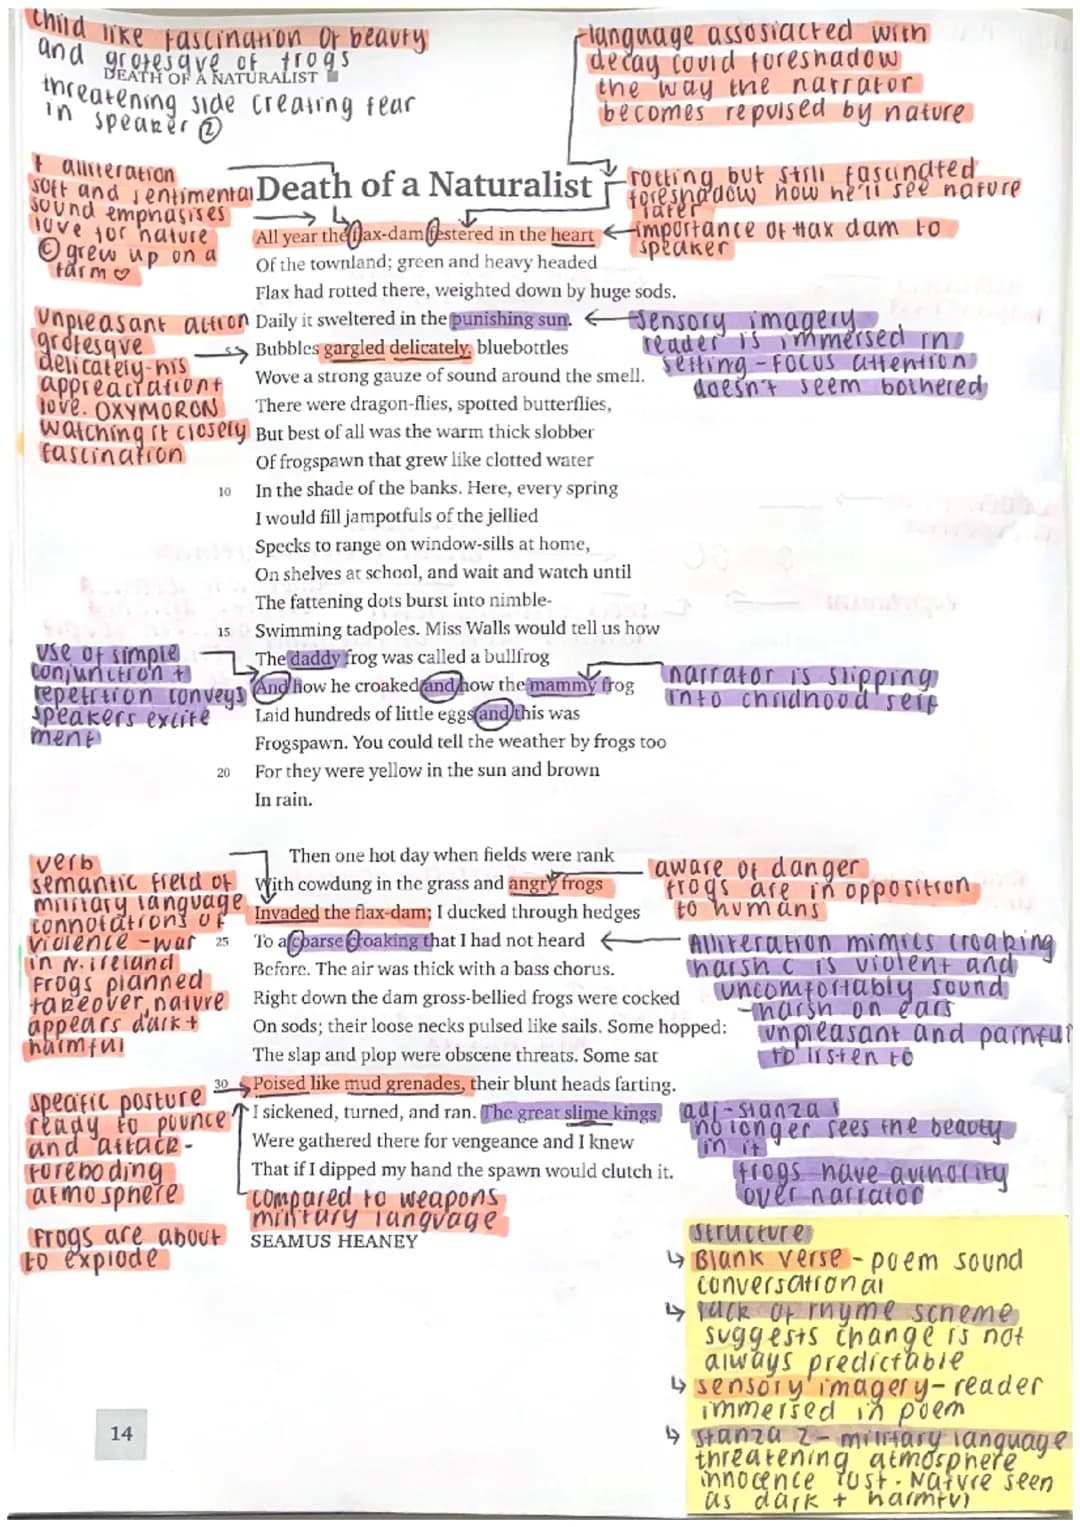 child like fascination of beauty
and grotesque of frogs
DEATH OF A NATURALIST
threatening side creating fear
in speaker ②
language assosiacted with
decay could foreshadow
the way the narrator
becomes repulsed by nature
+ alliteration
soft and sentimental
sound emphasises
love for nature
© grew up on a
farm ♡
Death of a Naturalist
rotting but still fascinated
foreshadow how he'll see nature
later
importance of flax dam to
speaker
All year the flax-dam festered in the heart
Of the townland; green and heavy headed
Flax had rotted there, weighted down by huge sods.
Daily it sweltered in the punishing sun.
Bubbles gargled delicately, bluebottles
Wove a strong gauze of sound around the smell.
There were dragon-flies, spotted butterflies,
But best of all was the warm thick slobber
Of frogspawn that grew like clotted water
10 In the shade of the banks. Here, every spring
I would fill jampotfuls of the jellied
Specks to range on window-sills at home,
On shelves at school, and wait and watch until
The fattening dots burst into nimble-
15 Swimming tadpoles. Miss Walls would tell us how
The daddy frog was called a bullfrog
And how he croaked and how the mammy frog
Laid hundreds of little eggs and this was
Frogspawn. You could tell the weather by frogs too
20 For they were yellow in the sun and brown
In rain.
unpleasant action
grotesque
delicately-his
appreaciation +
love. OXYMORON
watching it closely
fascination
sensory imagery
reader is immersed in
setting - focus attention
doesn't seem bothered
use of simple
conjunction +
repetition conveys
speakers excite
ment
narrator is slipping
into childhood self
Then one hot day when fields were rank
With cowdung in the grass and angry frogs
Invaded the flax-dam; I ducked through hedges
25 To a coarse croaking that I had not heard
Before. The air was thick with a bass chorus.
Right down the dam gross-bellied frogs were cocked
On sods; their loose necks pulsed like sails. Some hopped:
The slap and plop were obscene threats. Some sat
30 Poised like mud grenades, their blunt heads farting.
I sickened, turned, and ran. The great slime kings
Were gathered there for vengeance and I knew
That if I dipped my hand the spawn would clutch it.
SEAMUS HEANEY
verb
semantic field of
military language
connotations of
violence - war
in N. ireland
Frogs planned
takeover, nature
appears dark +
harmful
aware of danger
frogs are in opposition
to humans
Alliteration mimics croaking
harsh c is violent and
uncomfortably sound
- harsh on ears
unpleasant and painful
to listen to
specific posture
ready to pounce
and attack-
foreboding
atmosphere
Frogs are about
to explode
compared to weapons
military language
adj - stanza 1
no longer sees the beauty
in it
frogs have authority
over narrator
structure
↳ Blank verse - poem sound
conversational
↳ lack of rhyme scheme
suggests change is not
always predictable
↳ sensory imagery - reader
immersed in poem
↳ stanza 2 - military language
threatening atmosphere
innocence lost. Nature seen
as dark + harmful
14